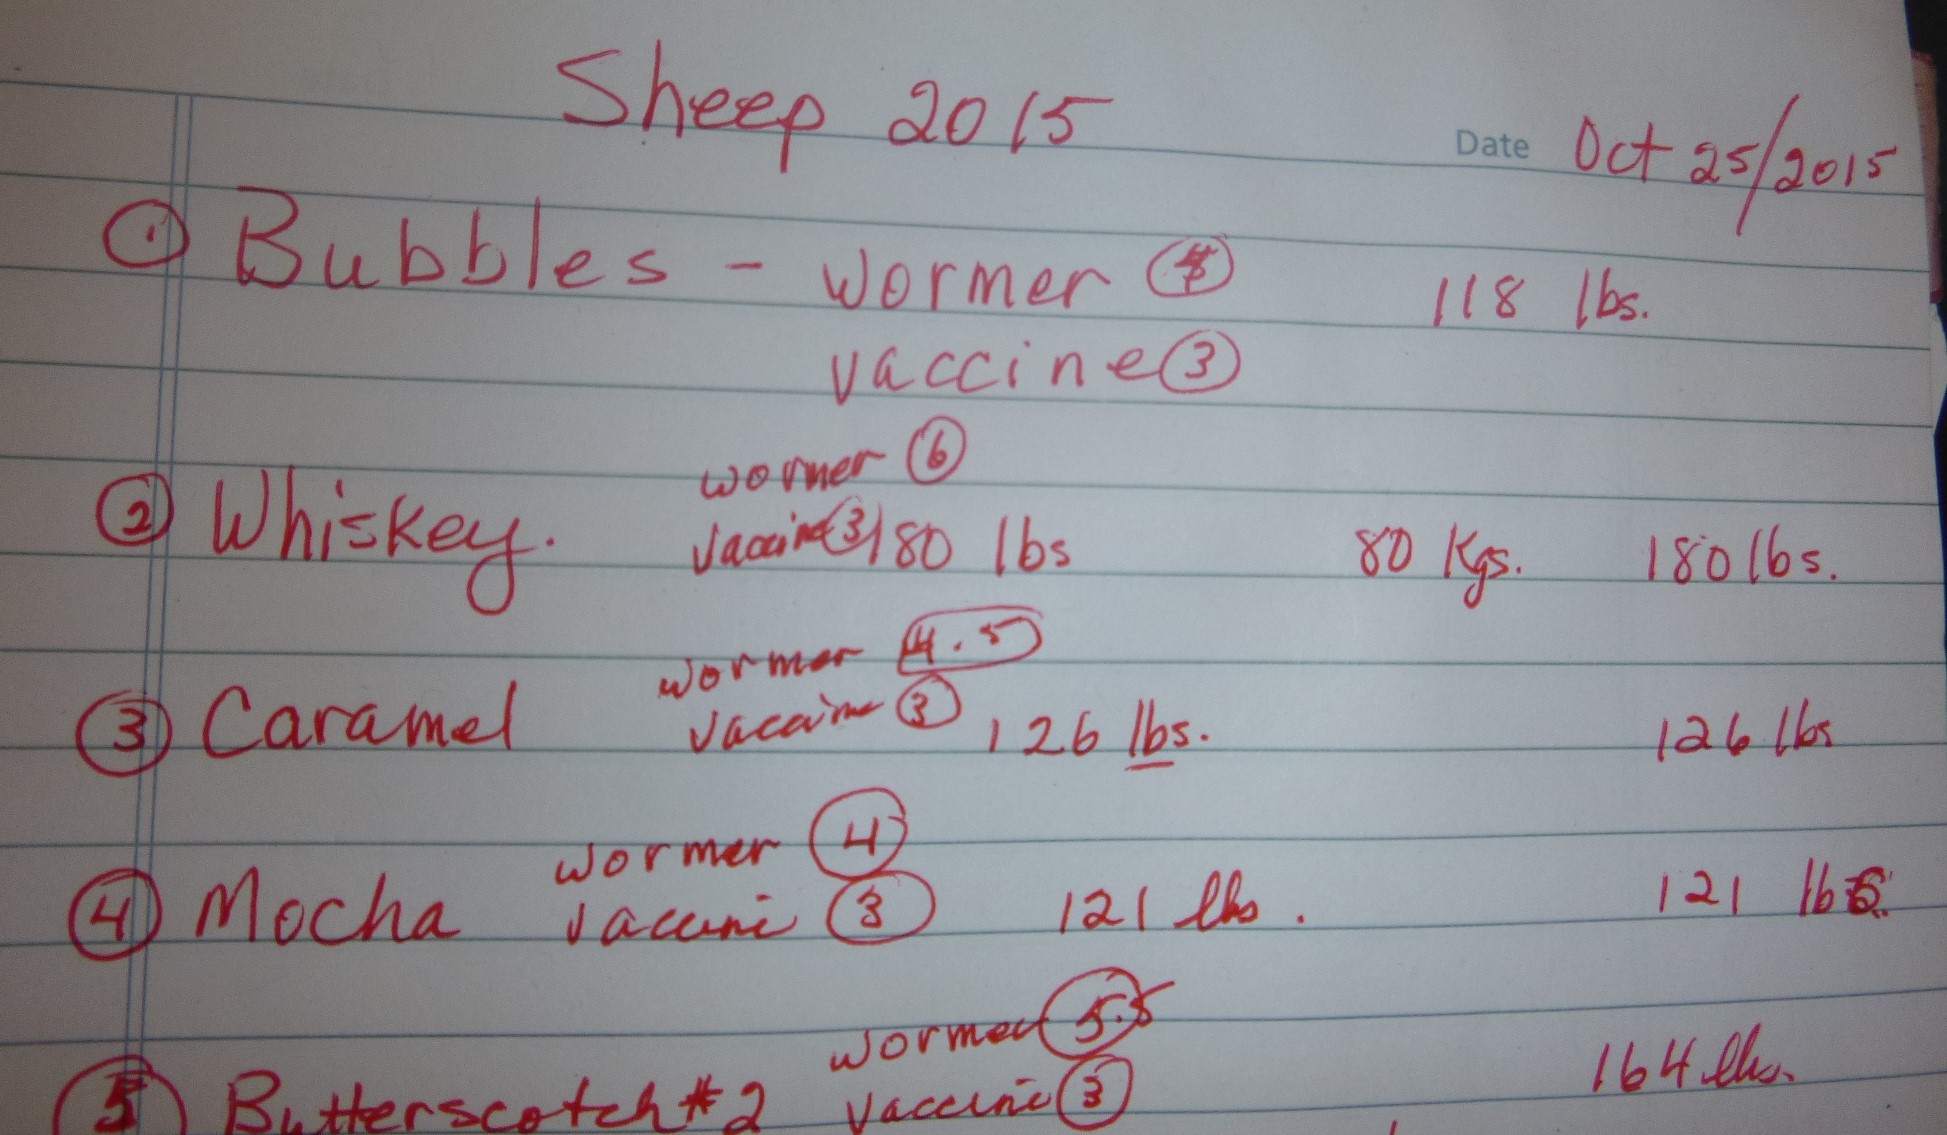 Sheep 2015
Date Oct 25/2015
① Bubbles - wormer 118 lbs.
vaccine ③
wormer ⑥
② Whiskey. vaccine ③ 180 lbs 80 Kgs. 180 lbs.
wormer 4.5
③ Caramel vaccine ③ 126 lbs. 126 lbs
wormer ④
④ Mocha vaccine ③ 121 lbs. 121 lbs.
wormer 5.5
164 lbs.
⑤ Butterscotch #2 vaccine ③